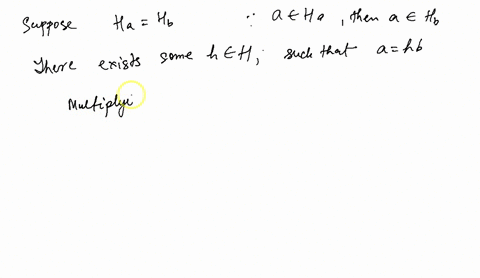 Suppose Ha = Hb ∵ a ∈ Ha, then a ∈ Hb
There exists some h ∈ H, such that a = hb
Multiplyi